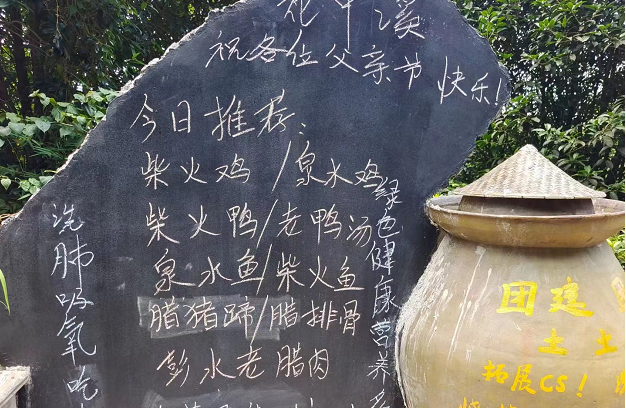 花千溪
祝各位父亲节快乐!
今日推荐:
柴火鸡/泉水鸡
柴火鸭/老鸭汤
泉水鱼/柴火鱼
腊猪蹄/腊排骨
彭水老腊肉
绿色健康营养
洗肺吸氧吃
团建
土土
拓展CS!